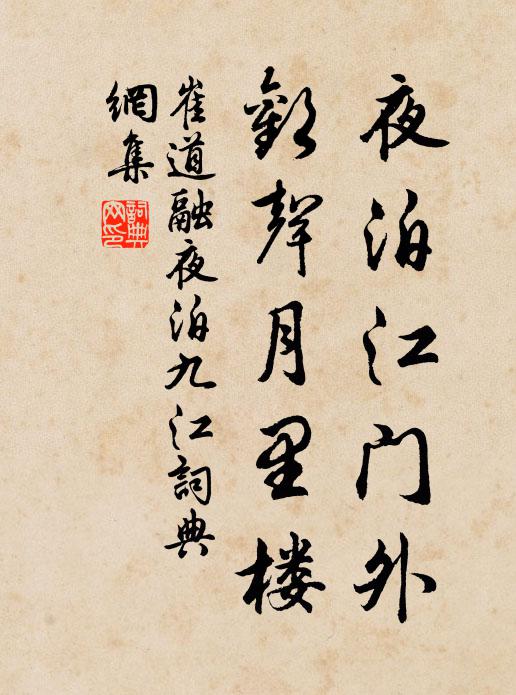 夜泊江门外
歡聲月里楼
崔道融夜泊九江詞典
網集
詞典
网印